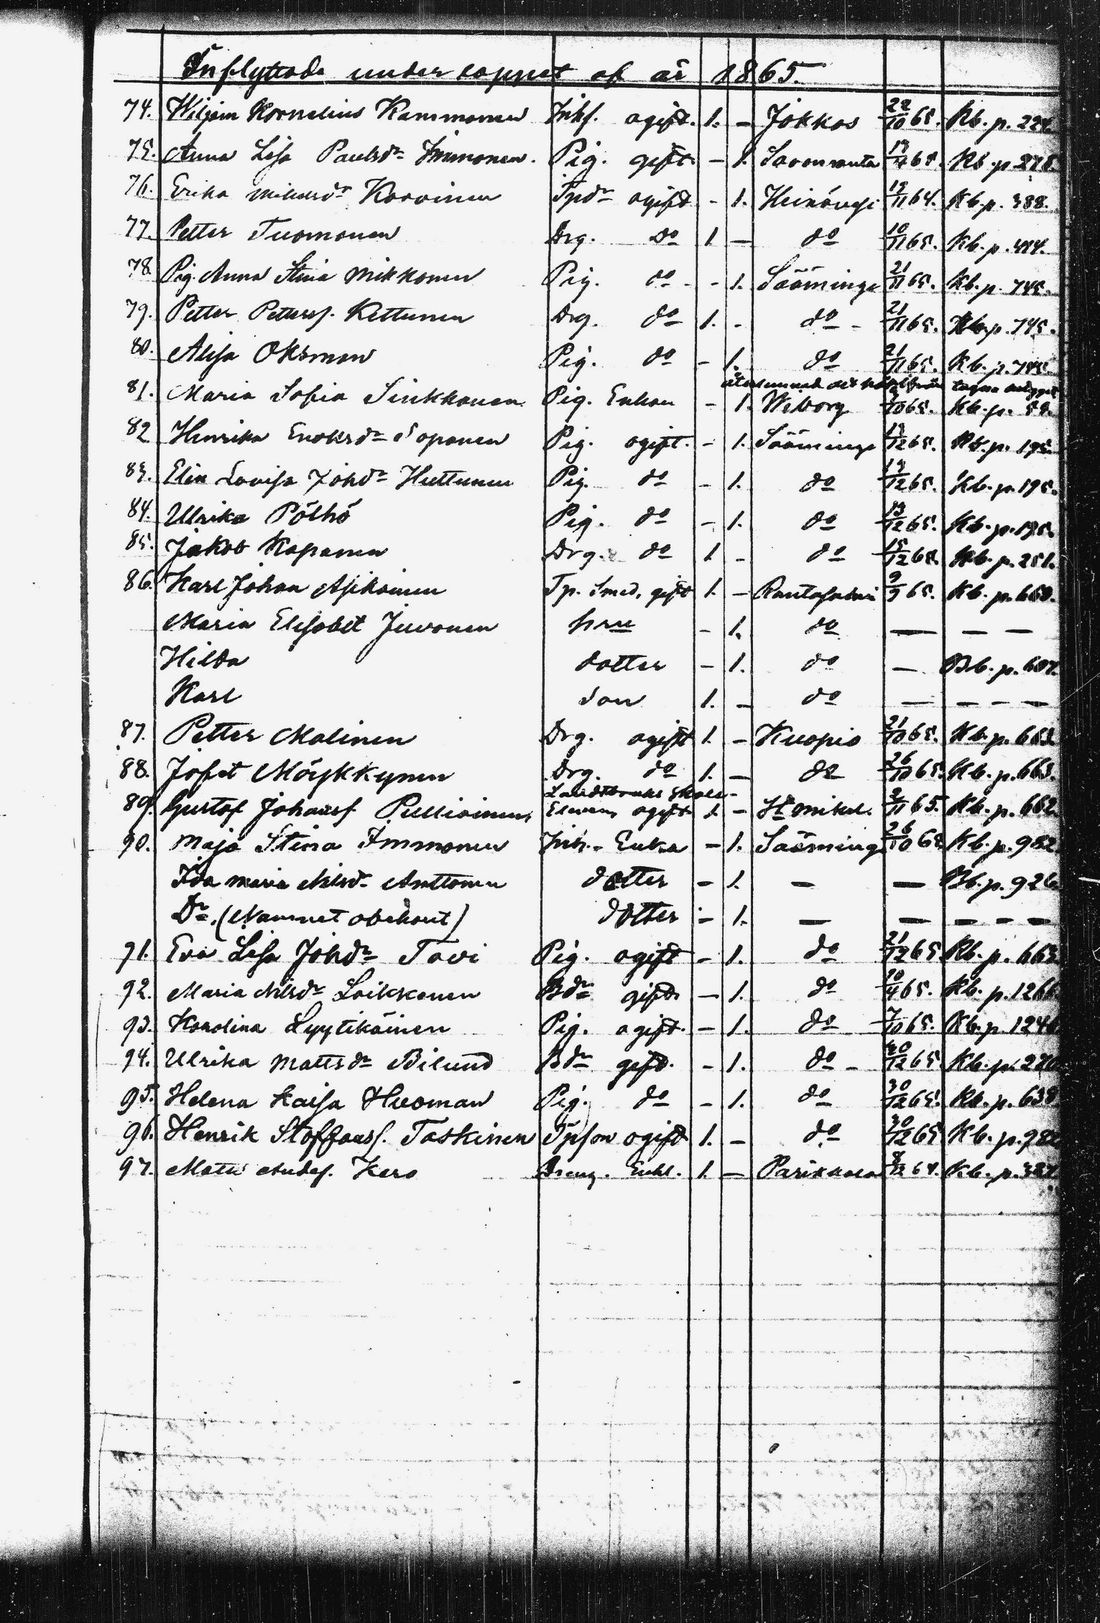 Inflyttade under loppet af år 1865.
74. Wilgem Kornelius Kammonen Inhs. ogift. 1. – Jokkas 22/10 65. Kb. p. 224.
75. Anna Lisa Paulsdr Immonen. Pig. gift. – 1. Savonranta 65. Kb. p. 278.
76. Erika Korvinen ogift – 1. Heinävesi 12/11 64. Kb. p. 388.
77. Petter Tuomonen Drg. do 1 – do 10/11 65. Kb. p. 414.
78. Pig. Anna Stina Mikkonen Pig. do – 1. Sääminge 21/11 65. Kb. p. 745.
79. Petter Petersf. Kettunen Drg. do 1. – do 21/11 65. Kb. p. 745.
80. Alisa Oksman Pig. do – 1. do 21/11 65. Kb. p. 745
81. Maria Sofia Sinkkonen Pig. Enkan – 1. Wiborg /10 65. Kb. p. 58.
82 Henrika Enoksdr Soponen Pig. ogift. – 1. Sääminge /12 65. Kb. p. 195.
83. Elin Lovisa Johdr Huttunen Pig. do – 1. do /12 65. Kb. p. 195.
84. Ulrika Pölhö Pig. do – 1. do 13/12 65. Kb. p. 195.
85. Jakob Kapanen Drg. do 1 – do 15/12 65. Kb. p. 251.
86. Karl Johan Asikainen Tp. Smed, gift 1. – Rantasalmi 9/9 65. Kb. p. 660.
Maria Elisabet Juvonen hru – 1. do – – –
Hilda dotter – 1. do – Bb. p. 607.
Karl son 1. – do – – – –
87. Petter Malinen Drg. ogift 1. – Kuopio 21/10 65. Kb. p. 663
88. Josef Möykkynen Drg. do 1. – do 26/10 65. Kb. p. 663.
Landtbruks skole-
89. Gustaf Johansf Pulliainen, Eleven ogift 1 – St. Mikel. /11 65. Kb. p. 662
90. Maja Stina Immonen Inhs. Enka – 1. Sääming 26/10 65 Kb. p. 982
Ida Maria Nilsdr Anttonen dotter – 1. – – Bb. p. 926
Dr. (Namnet obekant) dotter – 1. – – – –
91. Eva Lisa Johdr Tovi Pig. ogift – 1. do 21/12 65 Kb. p. 663
92. Maria Nilsdr Loikkonen Bdr gift. – 1. do 10/9 65. Kb. p. 1266
93. Karolina Lyytikäinen Pig. ogift. – 1. do 7/10 65. Kb. p. 1246
94. Ulrika Mattsdr Bilund Bdr gift. – 1. do – /12 65 Kb. p. 270
95. Helena Kaisa Huoman Pig. do – 1. do 30/12 65. Kb. p. 638
96. Henrik Stoffansf. Taskinen Tpson ogift 1. – do. 30/12 65 Kb. p. 982
97. Matts Andsf. Kero Dreng. Enkl. 1. – Parikkala 8/12 64. Kb. p. 387